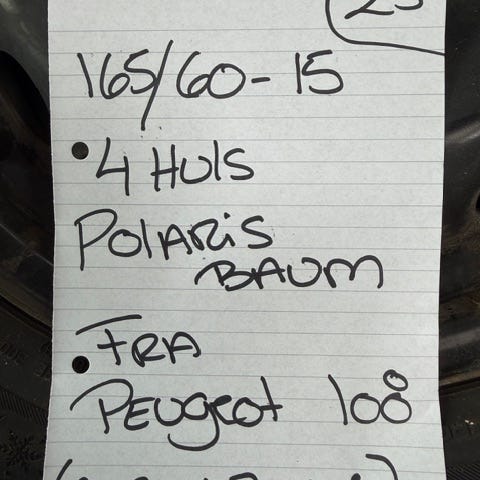 25
165/60-15
4 HULS
POLARIS
BAUM
FRA
PEUGEOT 108